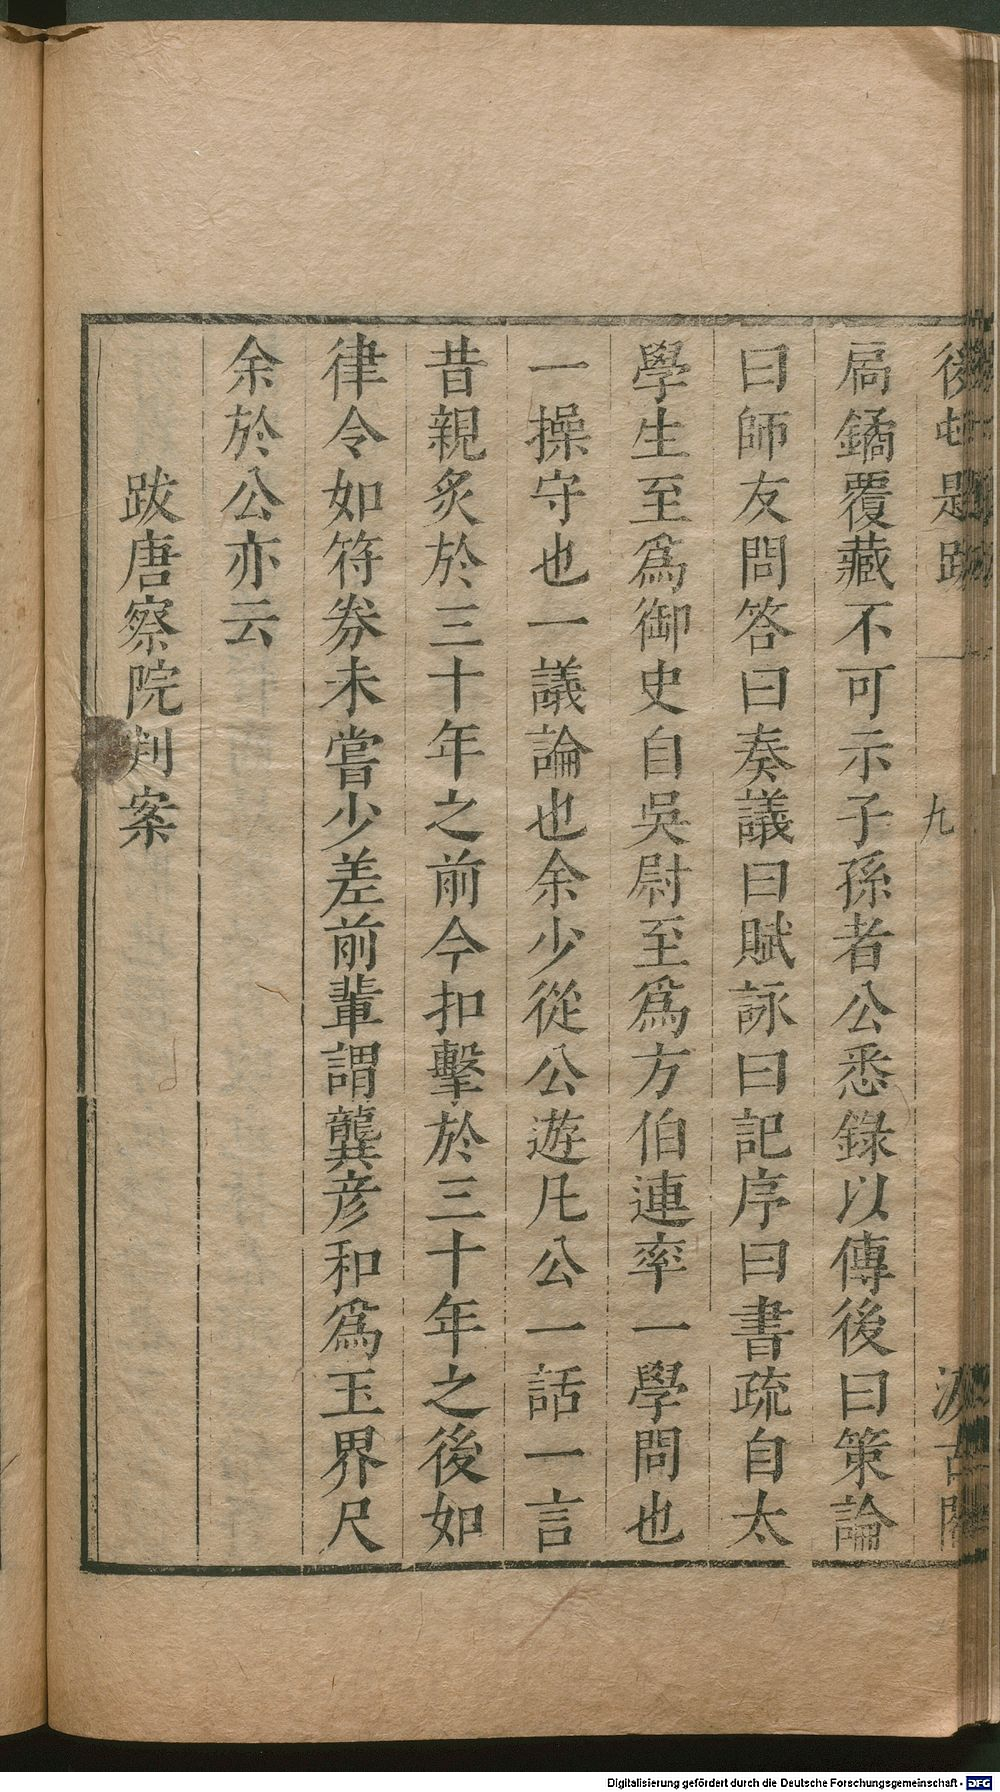 後村題跋 一 九 汲古閣
扃鐍覆藏不可示子孫者公悉錄以傳後曰策論
曰師友問答曰奏議曰賦詠曰記序曰書疏自太
學生至爲御史自吳尉至爲方伯連率一學問也
一操守也一議論也余少從公遊凡公一話一言
昔親炙於三十年之前今扣擊於三十年之後如
律令如符券未嘗少差前輩謂龔彦和爲玉界尺
余於公亦云
跋唐察院判案
Digitalisierung gefördert durch die Deutsche Forschungsgemeinschaft - DFG